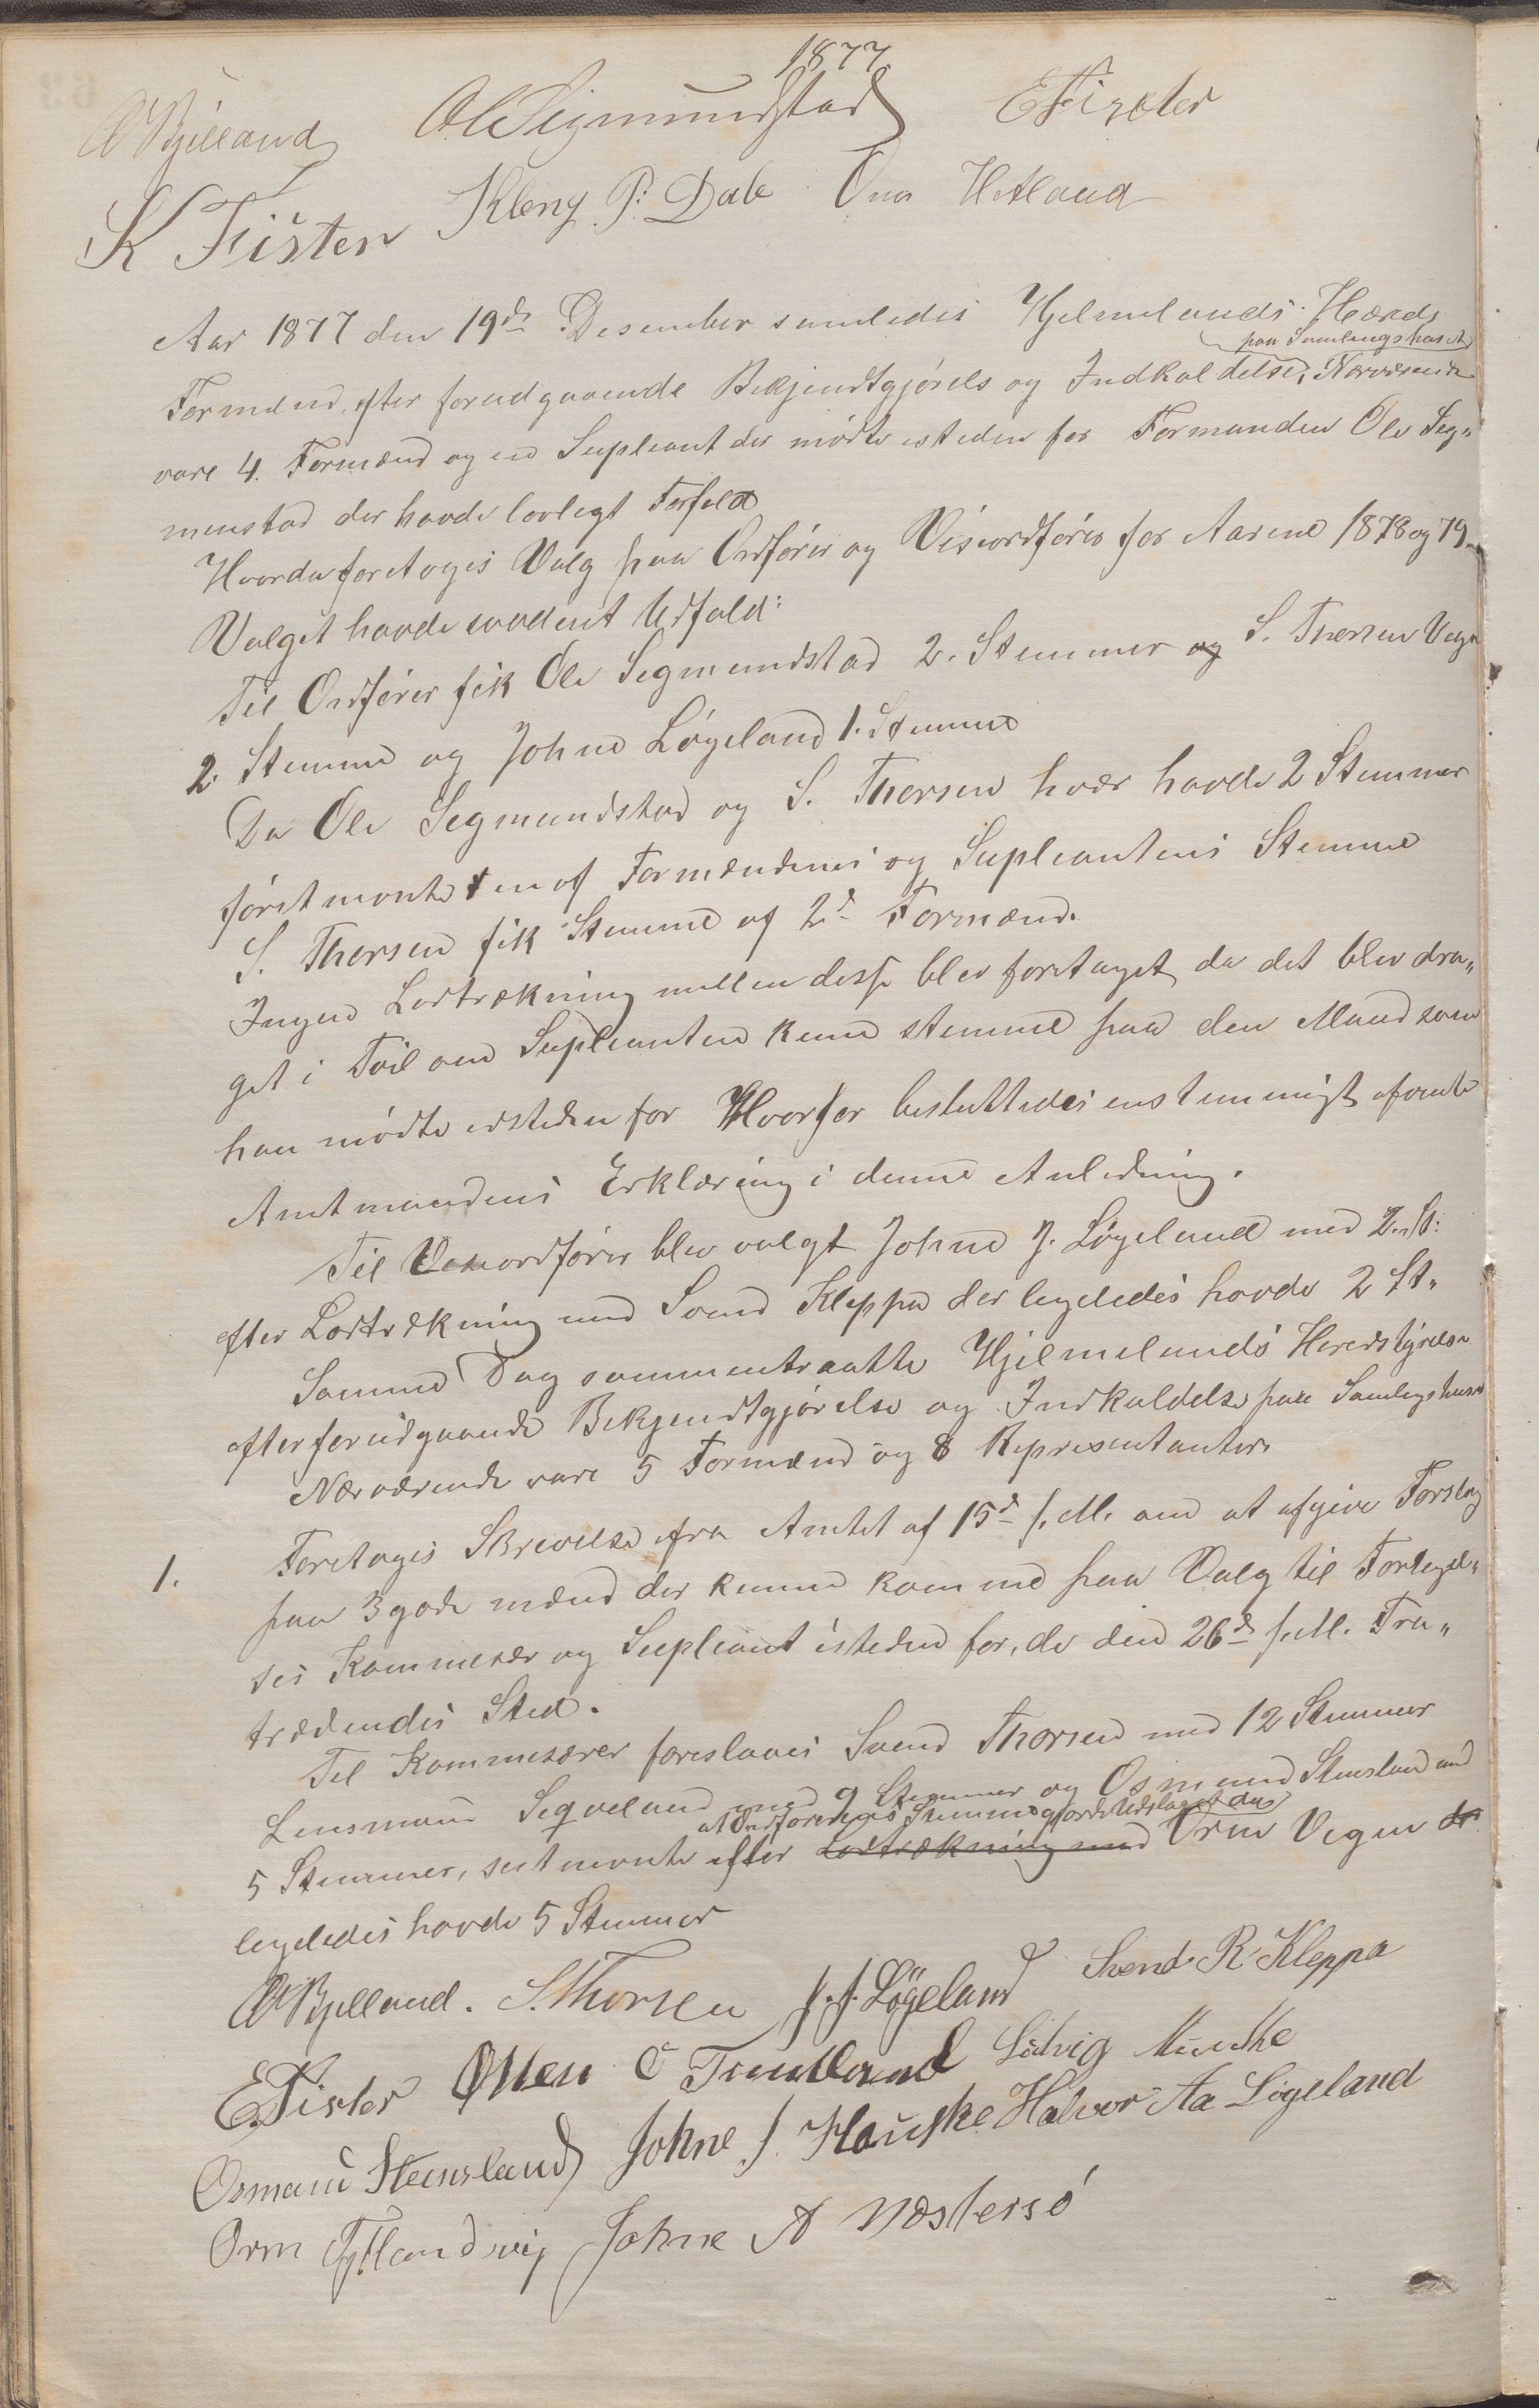 1877
O Bjelland Ol Sigmundstad E Fister
K Fister Kleng P: Dale Ona Hetland
Aar 1877 den 19de Desember samledes Hjelmelands Hærads
paa Samlingshuset
Formænd, efter forudgaaende Bekjendtgjörels og Indkaldelse, Nærværende
vare 4. Formænd og en Supleant der mödte isteden for Formanden Ole Seg„
menstad der havde lovlegt Forfald
Hvorda foretoges Valg paa Ordförer og Viseordförer for Aarene 1878 og 79.
Valget havde saadent Udfald:
Til Ordförer fik Ole Segmundstad 2. Stemmer og S. Thorsen Vega
2. Stemme og Johne Løgeland 1. Stemme
Da Ole Segmundstad og S. Thorsen hvær havde 2 Stemmer
förstnevnte en af Formændenes og Supleantens Stemme
S. Thorsen fik Stemme af 2de Formænd.
Ingen Lodtrækning mellem desse blev foretaget da det blev dra„
get i Tvil om Supleanten kune stemme paa den Mand som
han mödte isteden for Hvorfor besluttedes enstemmigt afvente
Amtmandens Erklæring i denne Anledning.
Til Veseordförer blev valgt Johne J. Løgeland med 2. St:
efter Lodtrækning med Svend Kleppa der legeledes havde 2 St„
Samme Dag sammentraatte Hjelmelands Heredstyrelse
efter forudgaaende Bekjendtgjörelse og Indkaldelse paa Samlingshuset
Nærværende vare 5 Formænd og 8 Representanter.
1. Foretoges Skrivelse fra Amtet af 15de f. M. om at afgive Forslag
paa 3 gode mænd der kunne komme paa Valg til Forlegel„
ses Kommesær og Supleant isteden for, de den 26de f. M. Fra„
trædendes Sted.
Til Kommesærer foreslaaes Svend Thorsen med 12 Stemmer
Lensmann Seqveland med 9 Stemmer og Osmund Stensland med
at Ordförerens Stemme gjorde Udslaget da
5 Stemmer, sestnevnte efter Lodtrækning med Orm Vegen der
legeledes havde 5 Stemmer
O Bjelland. S. Thorsen J. J. Løgeland Svend R Kleppa
E Fister Osten O Tuntland Ludvig Munthe
Osmund Steensland Johne J. Hauske Halvor Aa Løgeland
Orm Fyllandsvig Johne A Væstersö